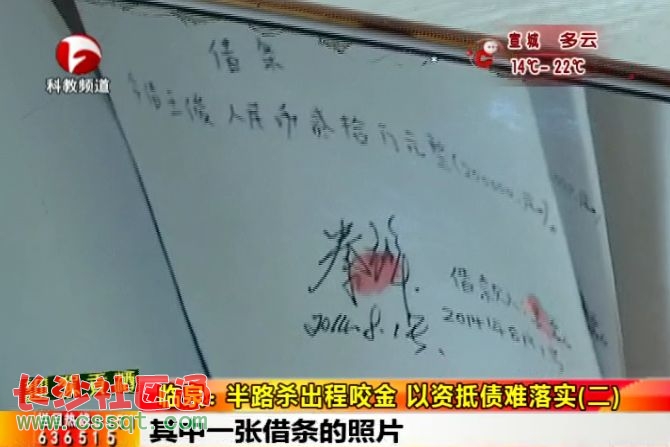 科教频道
宣城 多云
14℃-22℃
借条
今借王俊人民币贰拾万元整(200000.元)。
2014.8.1号.
借款人
2014年8月1号
临泉：半路杀出程咬金 以资抵债难落实(二)
长沙社区通
www.cssqt.com
636515
其中一张借条的照片